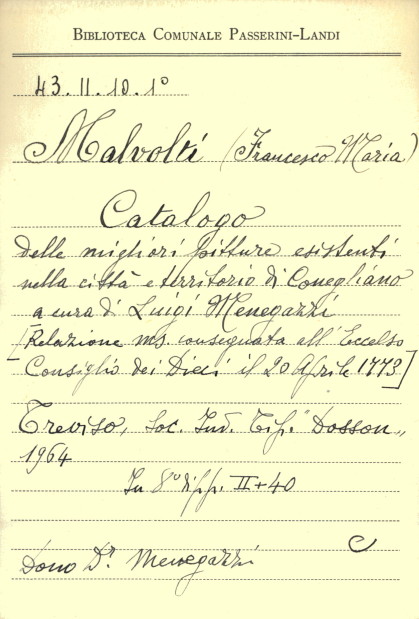 BIBLIOTECA COMUNALE PASSERINI-LANDI
43.II.10.1°
Malvolti (Francesco Maria)
Catalogo
delle migliori pitture esistenti
nella città e territorio di Conegliano
a cura di Luigi Menegazzi
[Relazione ms. consegnata all'Eccelso
Consiglio dei Dieci il 20 Aprile 1773]
Treviso, Soc. Ind. Tip. "Dosson",
1964
In 8° di pp. II+40
C
Dono Dr. Menegazzi